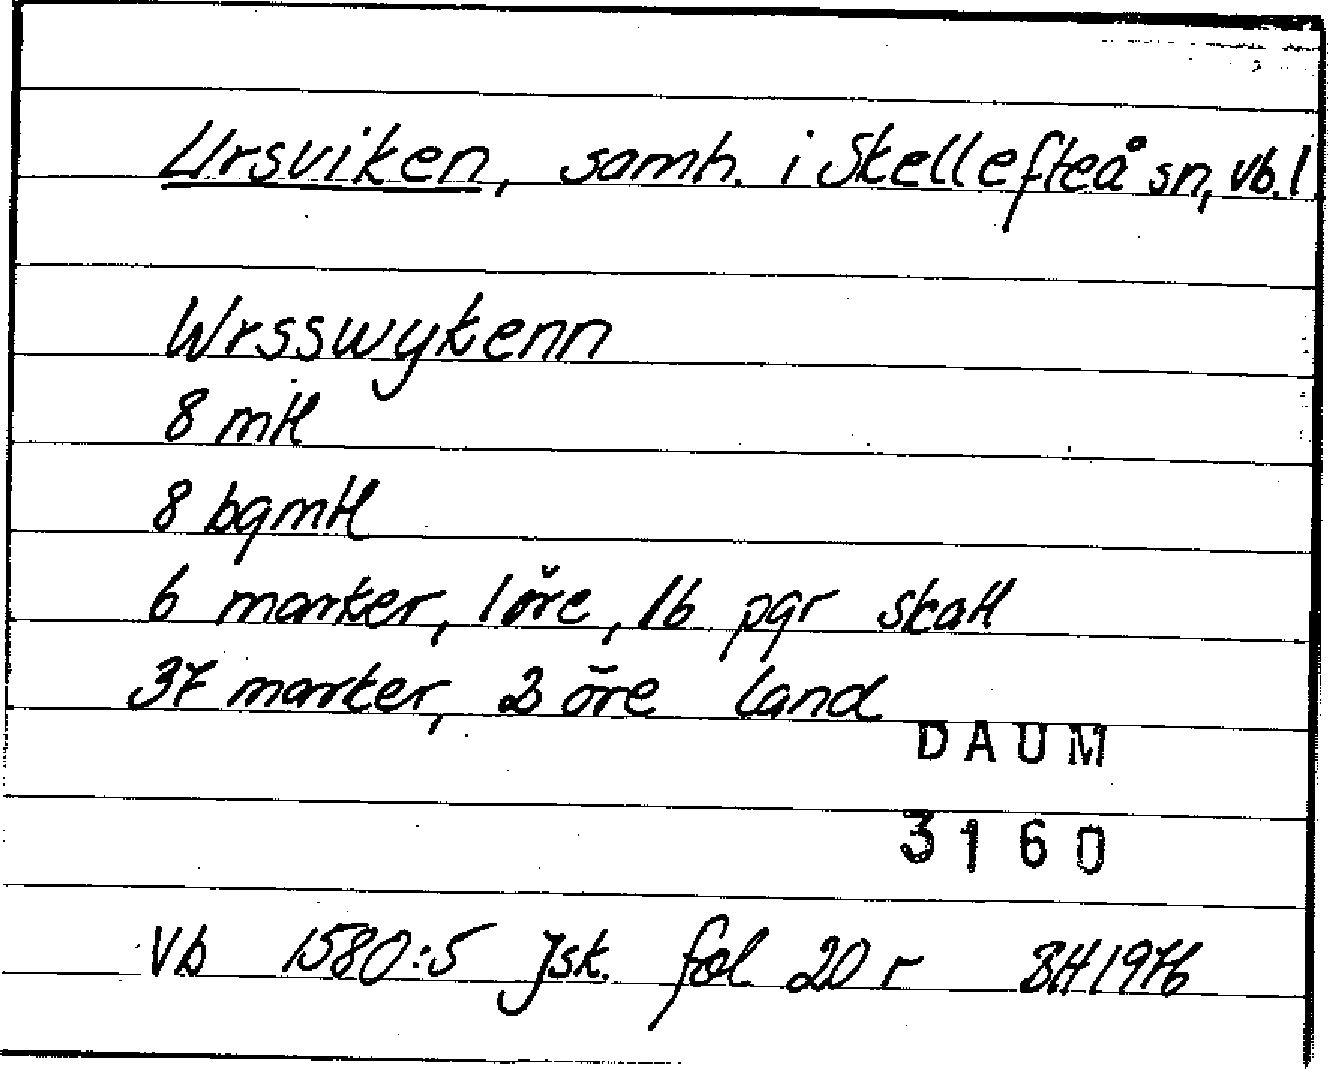 Ursviken, samh. i Skellefteå sn, Vb. l
Wrsswykenn
8 mtl
8 bgmtl
6 marker, 1 öre, 16 pgr skatt
37 marker, 2 öre land
DAUM
3160
Vb 1580:5 Jsk. fol 20 r BH 1976